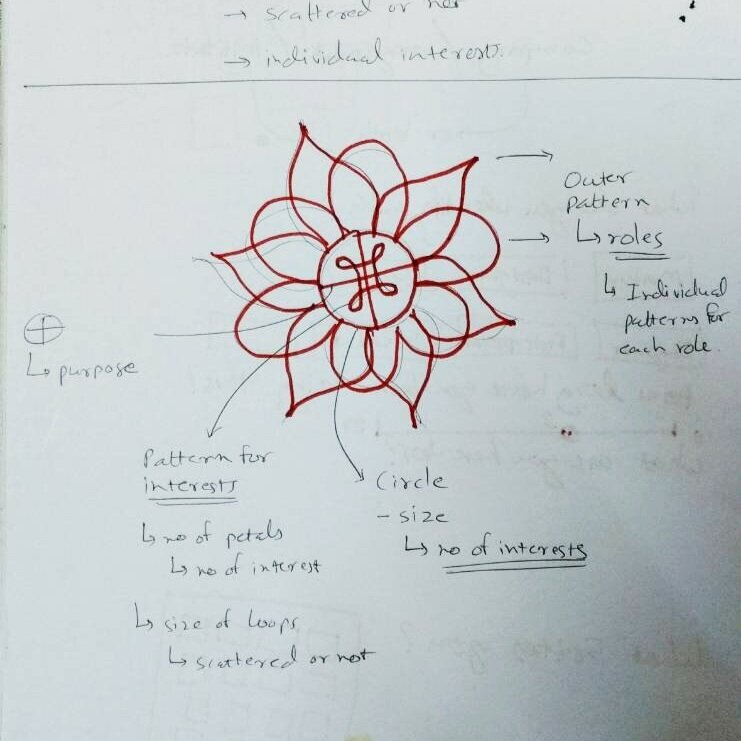 → scattered or not
→ individual interests.
Outer
pattern
↳ roles
↳ Individual
patterns for
each role.
↳ purpose
Pattern for
interests
↳ no of petals
↳ no of interest
↳ size of loops
↳ scattered or not
Circle
- size
↳ no of interests